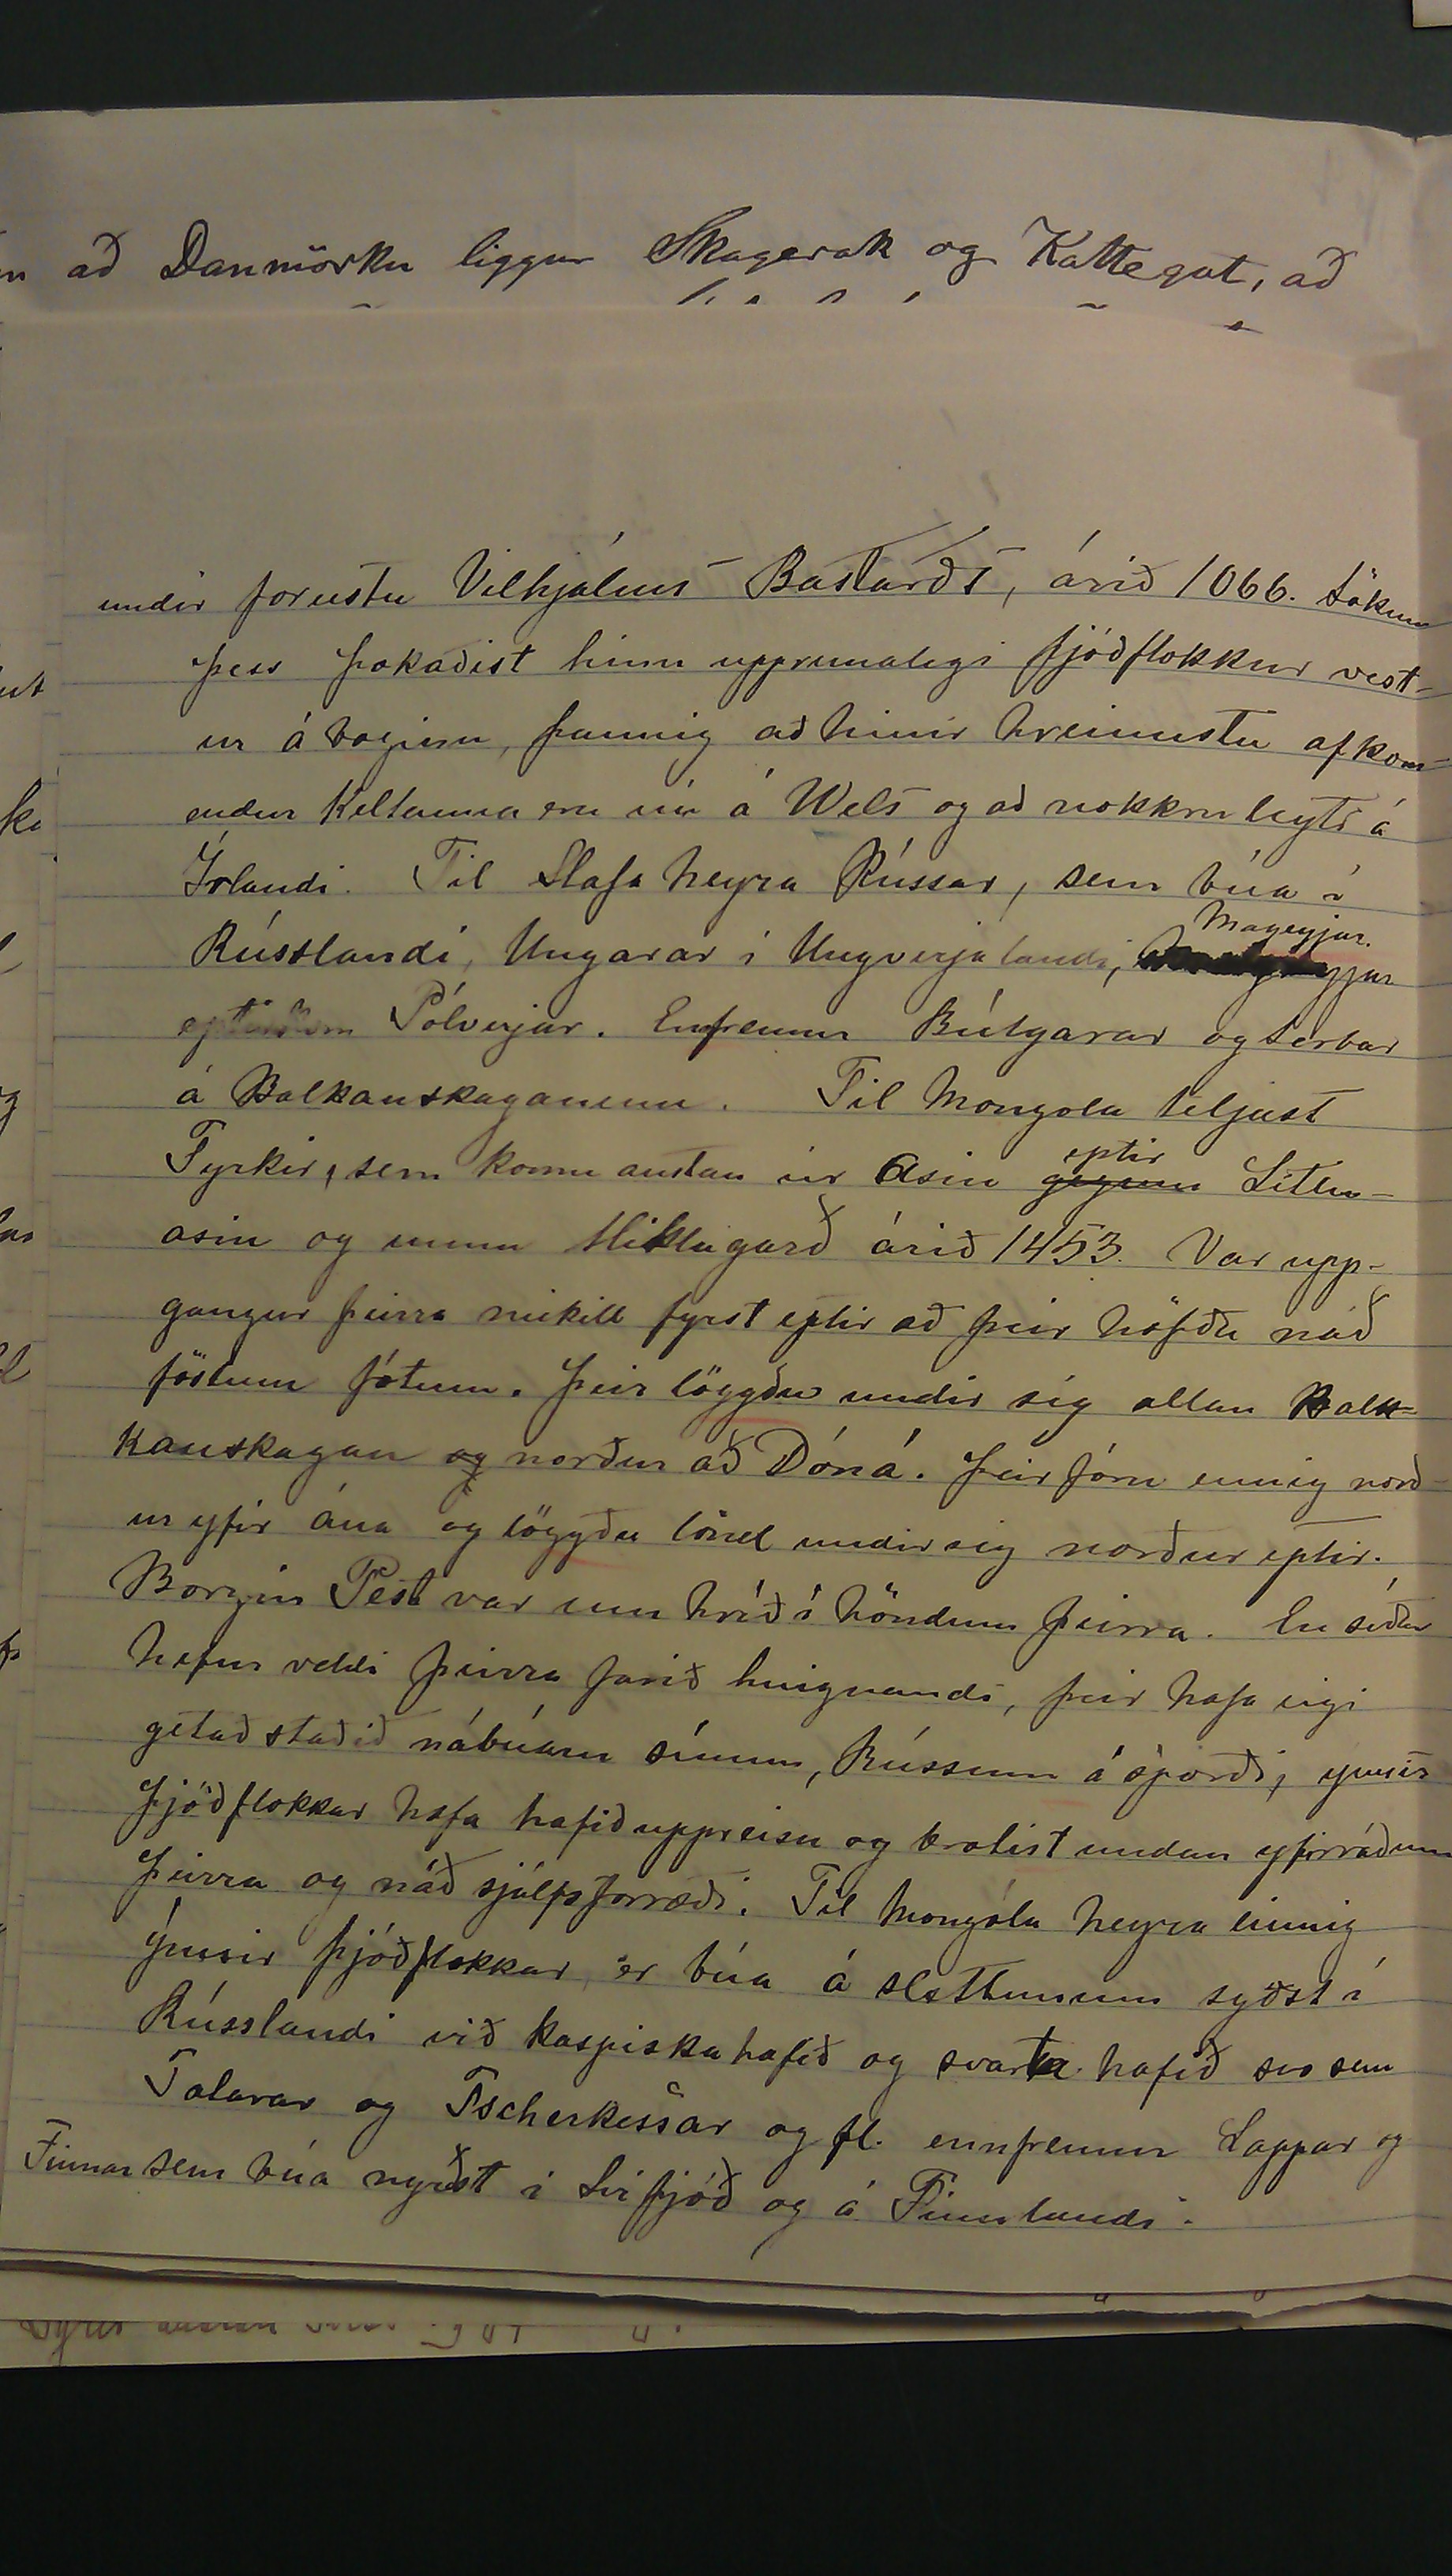 að Danmörku liggur Skagerak og Kattegat, að
undir forustu Vilhjálms Bastarðs, árið 1066. Sökum
þess þokaðist hinn upprunalegi þjóðflokkur vest-
ur á boginn, þannig að hinir hreinustu afkom-
endur Keltanna eru nú á Wels og að nokkru leyti á
Írlandi. Til Slafa heyra Rússar, sem búa í
Magyjar.
Rússlandi, Ungarar í Ungverjalandi,
Pólverjar. Enfremur Búlgarar og Serbar
á Balkanskaganum. Til Mongola teljast
eptir
Tyrkir, sem komu austan úr Asiu gegnum Litlu-
asiu og unnu Miklagarð árið 1453. Var upp-
gangur þeirra mikill fyrst eptir að þeir höfðu náð
föstum fótum. Þeir löggðu undir sig allan Balk-
kanskagan og norður að Dóná. Þeir fóru einnig norð-
ur yfir ána og löggðu lönd undir sig norður eptir.
Borgin Pest var um hríð í höndum þeirra. En síðar
hefur veldi þeirra farið hnignandi, þeir hafa eigi
getað staðið nábúum sínum, Rússum á sporði, ymsir
þjóðflokkar hafa hafið uppreisn og brotist undan yfirráðum
þeirra og náð sjálfsforræði. Til Mongóla heyra einnig
ýmsir þjóðflokkar er búa á slettunum syðst í
Rússlandi við kaspiska hafið og svarta hafið svo sem
Tatarar og Tscherkessar og fl. ennfremur Lappar og
Finnar sem búa nyrðst í Svíþjóð og á Finnlandi.